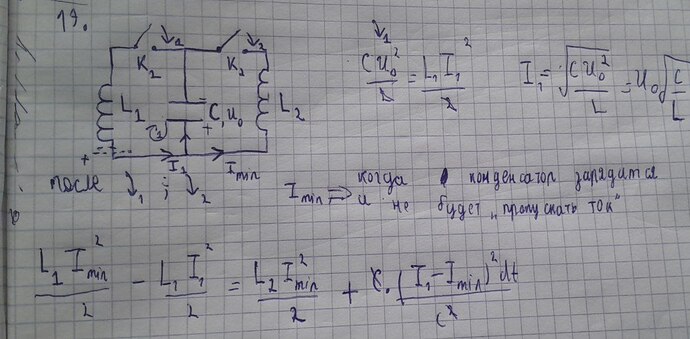 19.
K₂ ↓₁ K₂ ↓₂
L₁ C, U₀ L₂
- +
I₁ I_min
после ↓₁ ; ↓₂
↓₁
CU₀²/2 = L₁I₁²/2 I₁ = √(CU₀²/L) = U₀√(C/L)
I_min ⇒ когда конденсатор зарядится
и не будет „пропускать ток"
L₁I_min²/2 - L₁I₁²/2 = L₂I_min²/2 + (I₁-I_min)²dt/C²